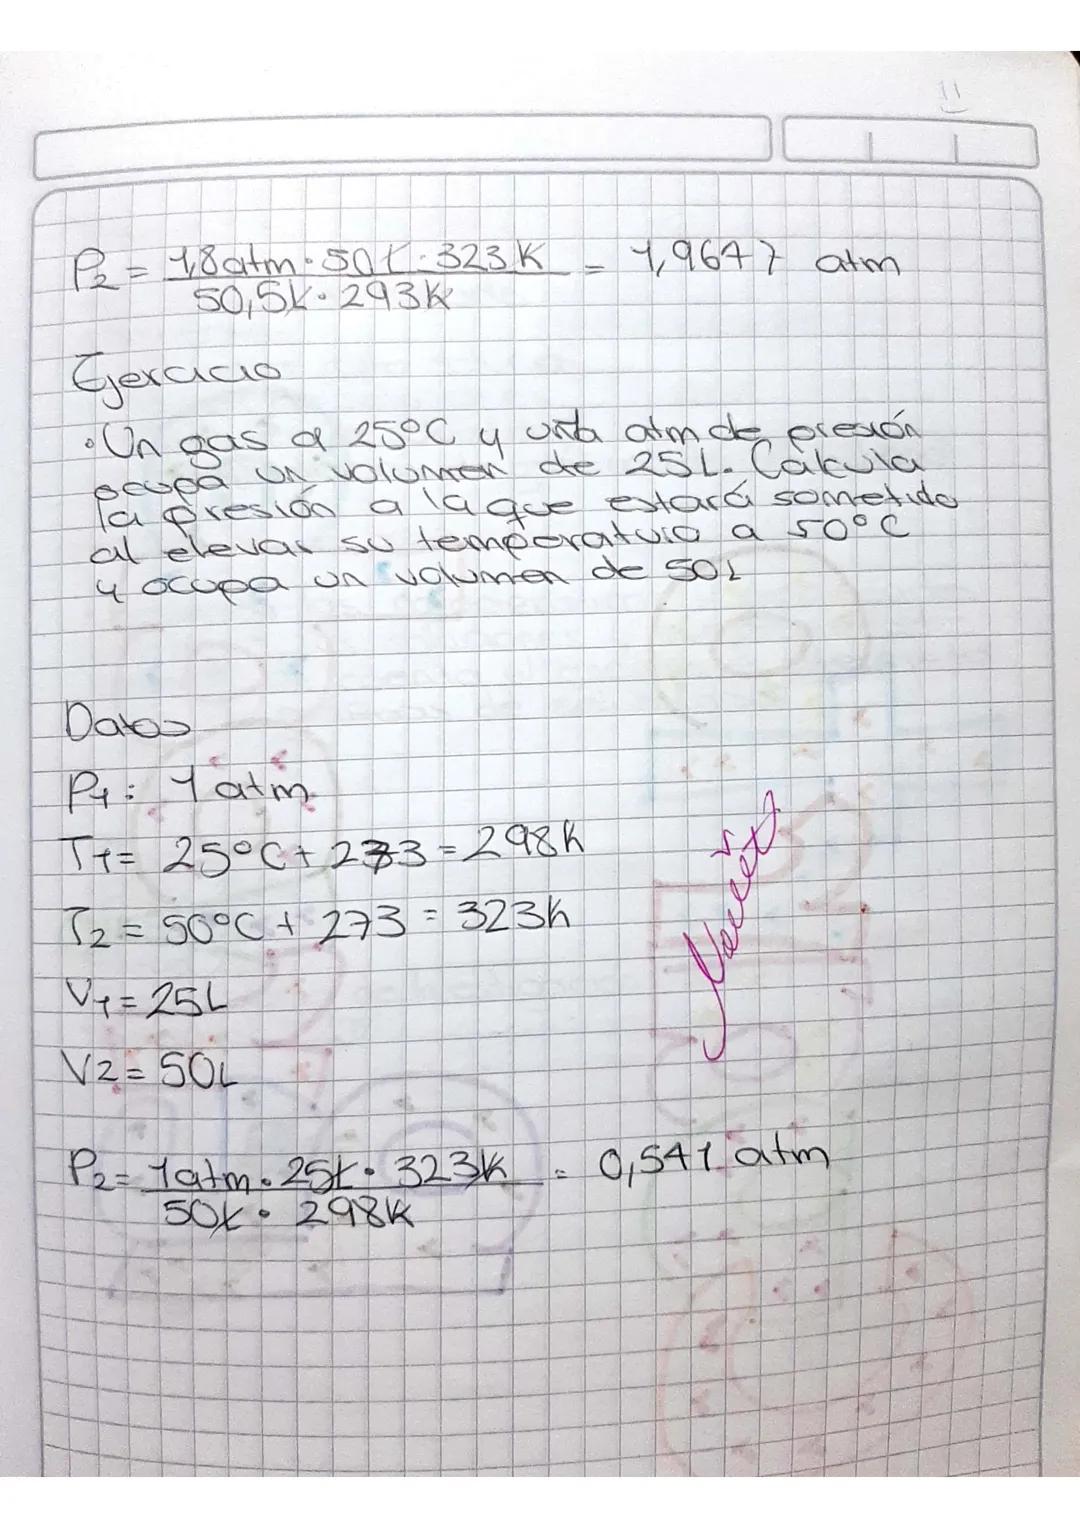 11
P2 = 1,8atm · 50L · 323K = 1,9647 atm
50,5L · 293K
Ejercicio
• Un gas a 25°C y una atm de presión
ocupa un volumen de 25L. Calcula
la presión a la que estará sometido
al elevar su temperatura a 50°C
y ocupa un volumen de 50L
Datos
P1: 1 atm
T1= 25°C + 273 = 298K
T2 = 50°C + 273 = 323K
V1 = 25L
V2 = 50L
P2= 1atm · 25L · 323K = 0,541 atm
50L · 298K